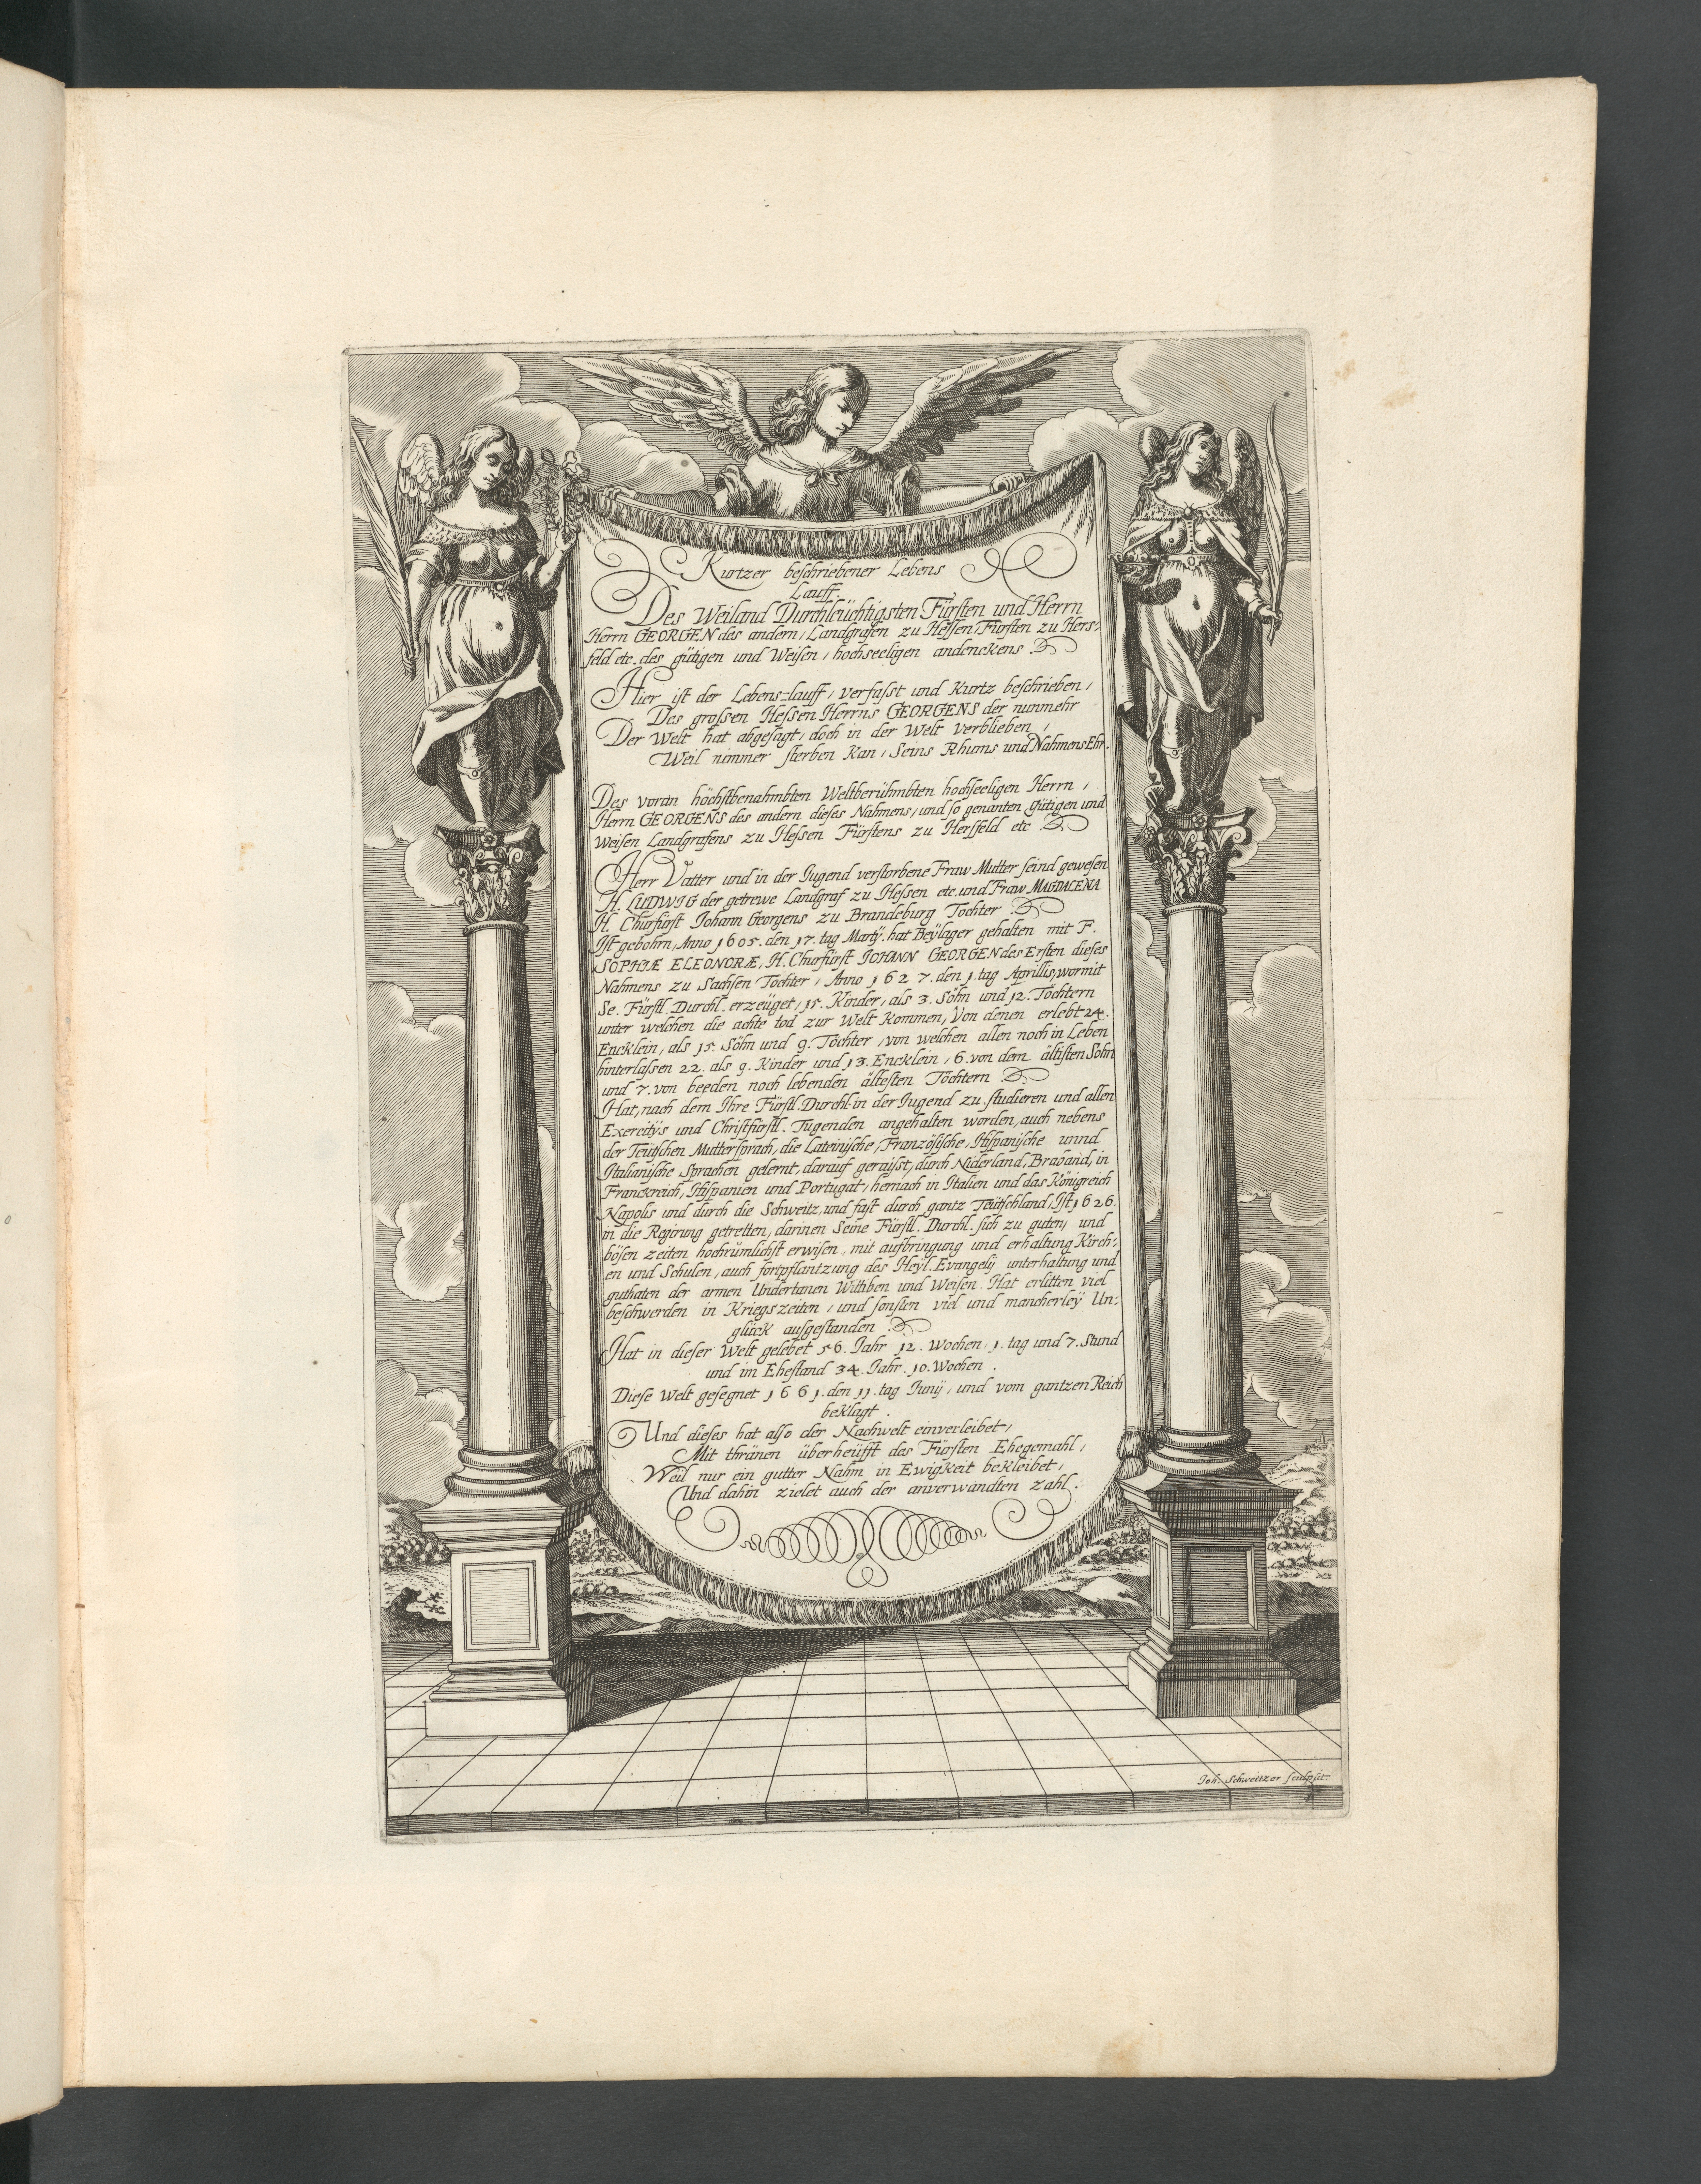 Kurtzer beschriebener Lebens
Lauff.
Des Weiland Durchleüchtigsten Fürsten und Herrn
Herrn GEORGEN des andern, Landgrafen zu Hessen, Fürsten zu Hers-
feld etc. des gütigen und Weisen, hochseeligen andenckens.
Hier ist der Lebens-lauff, verfasst und Kurtz beschrieben,
Des grossen Hessen Herrns GEORGENS der nunmehr
Der Welt hat abgesagt, doch in der Welt verblieben,
Weil nimmer sterben Kan, Seins Rhums und Nahmens Ehr.
Des voran höchstbenahmbten Weltberühmbten hochseeligen Herrn,
Herrn GEORGENS des andern dieses Nahmens, und so genanten gütigen und
Weisen Landgrafens zu Hessen Fürstens zu Hersfeld etc
Herr Vatter und in der Jugend verstorbene Fraw Mutter seind gewesen
H. LUDWIG der getrewe Landgraf zu Hessen etc. und Fraw MAGDALENA
H. Churfürst Johann Georgens zu Brandeburg Tochter
Ist gebohrn, Anno 1605. den 17. tag Martÿ. hat Beÿlager gehalten mit F.
SOPHIÆ ELEONORÆ, H. Churfürst JOHANN GEORGEN des Ersten dieses
Nahmens zu Sachsen Tochter, Anno 1627. den 1. tag Aprillis, wormit
Se. Fürstl. Durchl. erzeüget, 15. Kinder, als 3. Söhn und 12. Töchtern
unter welchen die achte tod zur Welt Kommen, Von denen erlebt 24.
Encklein, als 15. Söhn und 9. Töchter, von welchen allen noch in Leben
hinterlassen 22. als 9. Kinder und 13. Encklein, 6. von dem ältisten Sohn
und 7. von beeden noch lebenden ältesten Töchtern
Hat, nach dem Ihre Fürstl. Durchl. in der Jugend zu studieren und allen
Exercitÿs und Christfürstl. Tugenden angehalten worden, auch nebens
der Teütschen Muttersprach, die Lateinische, Französische, Hispanische unnd
Italianische Sprachen gelernt, darauf geraisst, durch Niderland, Braband, in
Franckreich, Hispanien und Portugal, hernach in Italien und das Königreich
Napolis und durch die Schweitz, und fast durch gantz Teütschland, Ist 1626.
in die Regirung getretten, darinen Seine Fürstl. Durchl. sich zu guten, und
bösen zeiten hochrümlichst erwisen, mit aufbringung und erhaltung Kirch-
en und Schulen, auch fortpflantzung des Heÿl. Evangelÿ unterhaltung und
guthaten der armen Undertanen Wittiben und Weisen. Hat erlitten viel
beschwerden in Kriegszeiten, und sonsten viel und mancherleÿ Un-
glück aufgestanden.
Hat in dieser Welt gelebet 56. Jahr 12. Wochen, 1. tag und 7. Stund
und im Ehestand 34. Jahr. 10. Wochen.
Diese Welt gesegnet 1661. den 11. tag Junÿ, und vom gantzen Reich
beklagt.
Und dieses hat also der Nachwelt einverleibet,
Mit thränen überheüfft des Fürsten Ehegemahl,
Weil nur ein gutter Nahm in Ewigkeit bekleibet,
Und dahin zielet auch der anverwandten zahl.
Joh. Schweitzer sculpsit.